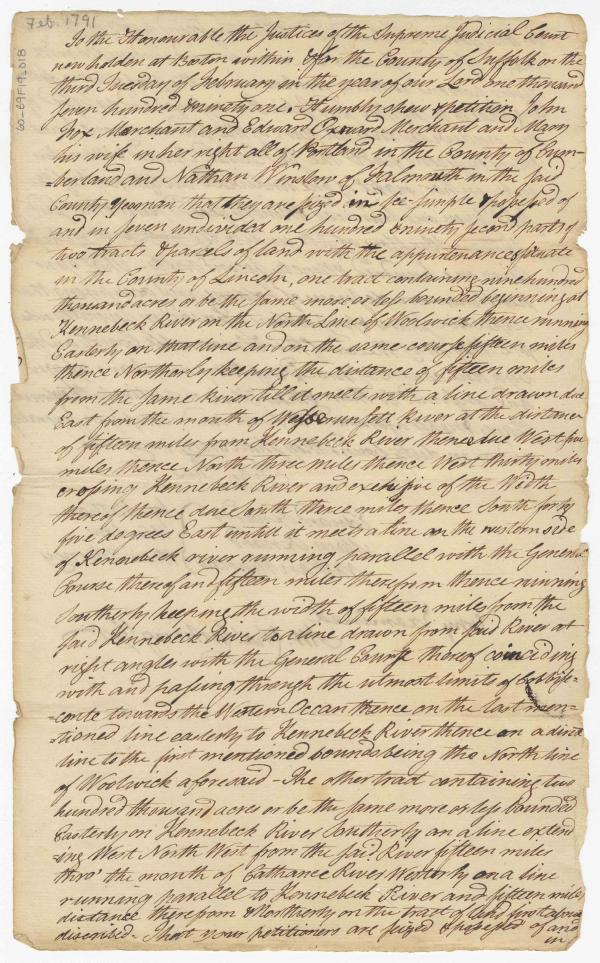 Feb. 1791
60-69F19-018
To the Honourable the Justices of the Supreme Judicial Court
now holden at Boston within & for the County of Suffolk on the
third Tuesday of February in the year of our Lord One thousand
seven hundred & ninety one. Humbly shew & petition John
Fox Merchant and Edward Oxnard Merchant and Mary
his wife in her right all of Portland in the County of Cum-
-berland and Nathan Winslow of Falmouth in the said
County Yeoman that they are seized in fee-simple & possessed of
and in seven undivided one hundred & ninety second parts of
two tracts & parcels of land with the appurtenances situate
in the County of Lincoln, one tract containing nine hundred
thousand acres or be the same more or less bounded beginning at
Kennebeck River on the North Line of Woolwick thence running
Easterly on that line and on the same course fifteen miles
thence Northerly keeping the distance of fifteen miles
from the same River till it meets with a line drawn due
East from the mouth of Wesserunsett River at the distance
of fifteen miles from Kennebeck River thence due West five
miles thence North three miles thence West thirty miles
crossing Kennebeck River and exclusive of the Width
thereof thence due South three miles thence South forty
five degrees East untill it meets a line on the western side
of Kennebeck river running parallel with the General
Course thereof and fifteen miles therefrom thence running
Southerly keeping the width of fifteen miles from the
said Kennebeck River to a line drawn from said River at
right angles with the General Course thereof coinciding
with and passing through the utmost limits of Cobbise-
conte towards the Western Ocean thence on the last men-
-tioned line easterly to Kennebeck River thence on a direct
line to the first mentioned bounds being the North line
of Woolwick aforesaid - The other tract containing two
hundred thousand acres or be the same more or less bounded
Easterly on Kennebeck River Southerly on a line extend
-ing West North West from the said River fifteen miles
thro' the mouth of Cathance River Westerly on a line
running parallel to Kennebeck River and fifteen miles
distance therefrom & Northerly on the tract of land first afore
discribed - That your petitioners are seized & possessed of and
in